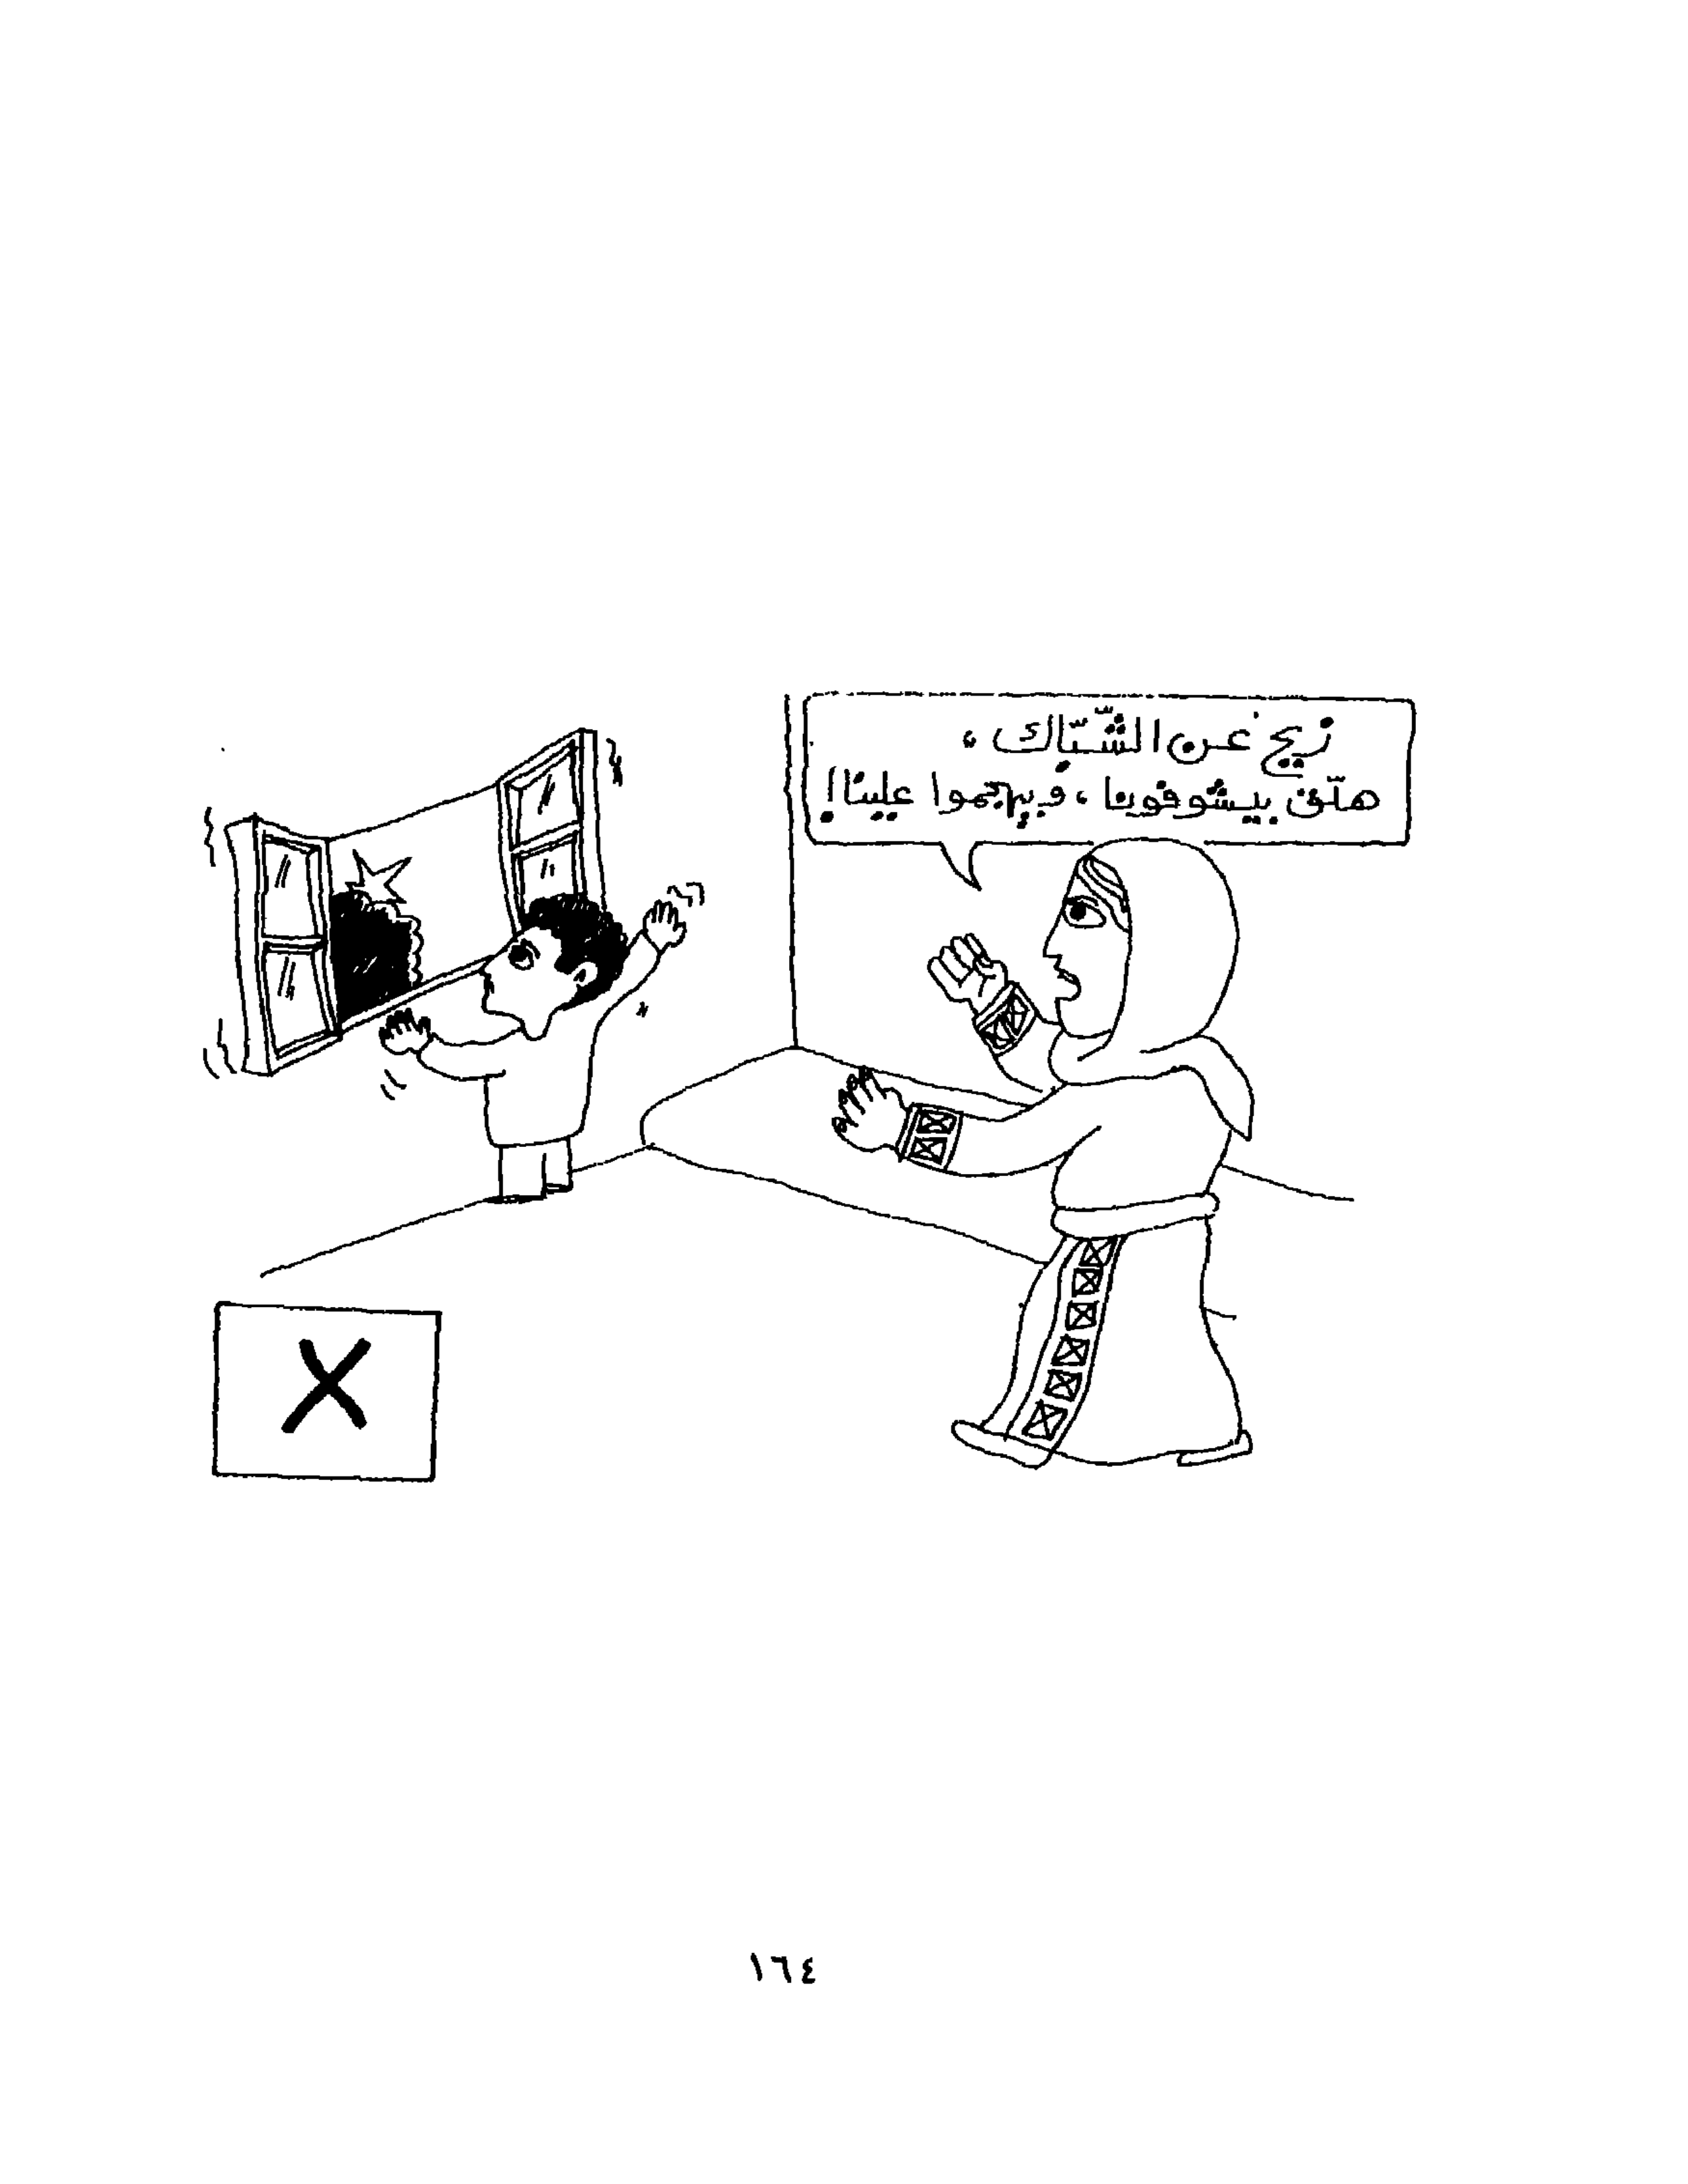 زيح عن الشّبّاك،
هلّق بيشوفونا، فبيهجموا علينا!
X
١٦٤